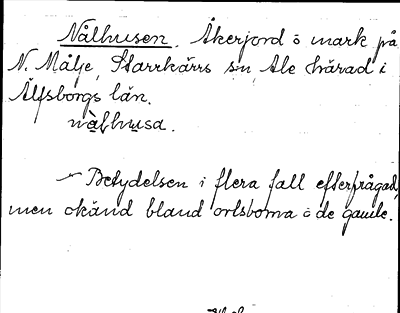 Nålhusen. Åkerjord o mark på
N. Målje, Starrkärrs sn, Ale härad i
Älfsborgs län.
nålhusa.
Betydelsen i flera fall efterfrågad,
men okänd bland ortsborna o de gamle.